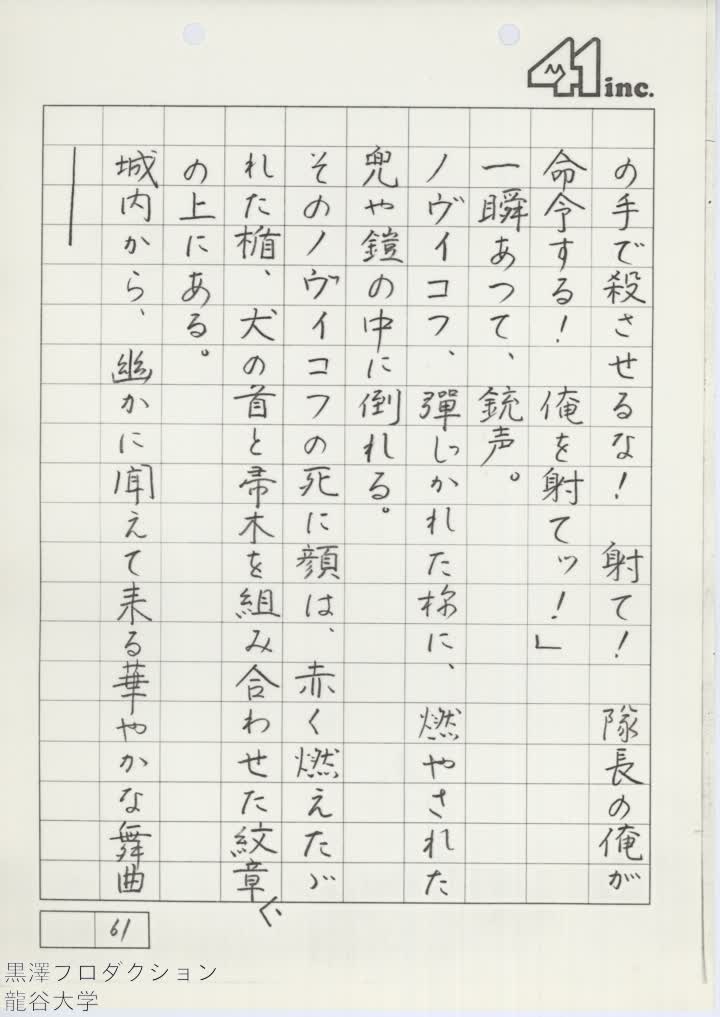 41 inc.
の手で殺させるな！　射て！　隊長の俺が
命令する！　俺を射てッ！」
一瞬あつて、銃声。
ノヴイコフ、彈じかれた様に、燃やされた
兜や鎧の中に倒れる。
そのノヴイコフの死に顔は、赤く燃えたゞ
れた楯、犬の首と帚木を組み合わせた紋章
の上にある。
城内から、幽かに聞えて来る華やかな舞曲
｜
61
黒澤プロダクション
龍谷大学